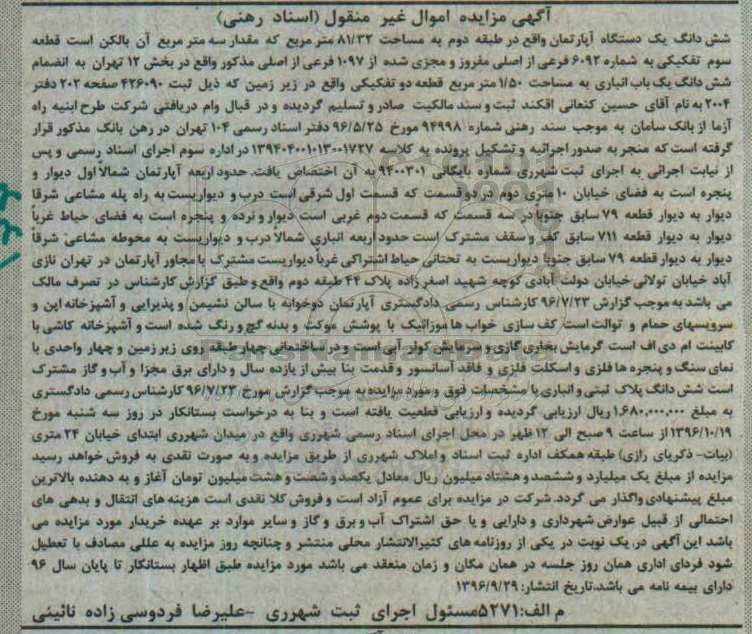 آگهی مزایده اموال غیر منقول (اسناد رهنی)
شش دانگ یک دستگاه آپارتمان واقع در طبقه دوم به مساحت ۸۱/۳۲ متر مربع که مقدار سه متر مربع آن بالکن است قطعه
سوم تفکیکی به شماره ۶۰۹۲ فرعی از اصلی مفروز و مجزی شده از ۱۰۹۷ فرعی از اصلی مذکور واقع در بخش ۱۲ تهران به انضمام
شش دانگ یک باب انباری به مساحت ۱/۵۰ متر مربع قطعه دو تفکیکی واقع در زیر زمین که ذیل ثبت ۴۲۶۰۹۰ صفحه ۲۰۲ دفتر
۲۰۰۴ به نام آقای حسین کنعانی افکند ثبت و سند مالکیت صادر و تسلیم گردیده و در قبال وام دریافتی شرکت طرح ابنیه راه
آزما از بانک سامان به موجب سند رهنی شماره ۹۴۹۹۸ مورخ ۹۶/۵/۲۵ دفتر اسناد رسمی ۱۰۴ تهران در رهن بانک مذکور قرار
گرفته است که منجر به صدور اجرائیه و تشکیل پرونده به کلاسه ۱۳۹۴۰۴۰۰۱۰۱۳۰۰۱۷۲۷ در اداره سوم اجرای اسناد رسمی و پس
از نیابت اجرائی به اجرای ثبت شهرری شماره بایگانی ۹۴۰۰۳۰۱ به آن اختصاص یافت. حدود اربعه آپارتمان شمالاً اول دیوار و
پنجره است به فضای خیابان ۱۰ متری دوم در دو قسمت که قسمت اول شرقی است درب و دیواریست به راه پله مشاعی شرقا
دیوار به دیوار قطعه ۷۹ سابق جنوبا در سه قسمت که قسمت دوم غربی است دیوار و نرده و پنجره است به فضای حیاط غرباً
دیوار به دیوار قطعه ۷۱۱ سابق کف و سقف مشترک است حدود اربعه انباری شمالاً درب و دیواریست به محوطه مشاعی شرقاً
دیوار به دیوار قطعه ۷۹ سابق جنوباً دیواریست به تحتانی حیاط اشتراکی غرباً دیواریست مشترک با مجاور آپارتمان در تهران نازی
آباد خیابان تولائی خیابان دولت آبادی کوچه شهید اصغر زاده پلاک ۴۴ طبقه دوم واقع و طبق گزارش کارشناس در تصرف مالک
می باشد به موجب گزارش ۹۶/۷/۲۳ کارشناس رسمی دادگستری آپارتمان دوخوابه با سالن نشیمن و پذیرایی و آشپزخانه اپن و
سرویسهای حمام و توالت است کف سازی خواب ها موزائیک با پوشش موکت و بدنه گچ و رنگ شده است و آشپزخانه کاشی با
کابینت ام دی اف است گرمایش بخاری گازی و سرمایش کولر آبی است و در ساختمانی چهار طبقه روی زیر زمین و چهار واحدی با
نمای سنگ و پنجره ها فلزی و اسکلت فلزی و فاقد آسانسور و قدمت بنا بیش از یازده سال و دارای برق مجزا و آب و گاز مشترک
است شش دانگ پلاک ثبتی و انباری با مشخصات فوق و مورد مزایده به موجب گزارش مورخ ۹۶/۷/۲۳ کارشناس رسمی دادگستری
به مبلغ ۱,۶۸۰,۰۰۰,۰۰۰ ریال ارزیابی گردیده و ارزیابی قطعیت یافته است و بنا به درخواست بستانکار در روز سه شنبه مورخ
۱۳۹۶/۱۰/۱۹ از ساعت ۹ صبح الی ۱۲ ظهر در محل اجرای اسناد رسمی شهرری واقع در میدان شهرری ابتدای خیابان ۲۴ متری
(بیات- ذکریای رازی) طبقه همکف اداره ثبت اسناد و املاک شهرری از طریق مزایده و به صورت نقدی به فروش خواهد رسید
مزایده از مبلغ یک میلیارد و ششصد و هشتاد میلیون ریال معادل یکصد و شصت و هشت میلیون تومان آغاز و به دهنده بالاترین
مبلغ پیشنهادی واگذار می گردد. شرکت در مزایده برای عموم آزاد است و فروش کلا نقدی است هزینه های انتقال و بدهی های
احتمالی از قبیل عوارض شهرداری و دارایی و یا حق اشتراک آب و برق و گاز و سایر موارد بر عهده خریدار مورد مزایده می
باشد این آگهی در یک نوبت در یکی از روزنامه های کثیرالانتشار محلی منتشر و چنانچه روز مزایده به عللی مصادف با تعطیل
شود فردای اداری همان روز جلسه در همان مکان و زمان منعقد می باشد مورد مزایده طبق اظهار بستانکار تا پایان سال ۹۶
دارای بیمه نامه می باشد. تاریخ انتشار: ۱۳۹۶/۹/۲۹
م الف: ۵۲۷۱ مسئول اجرای ثبت شهرری -علیرضا فردوسی زاده نائینی